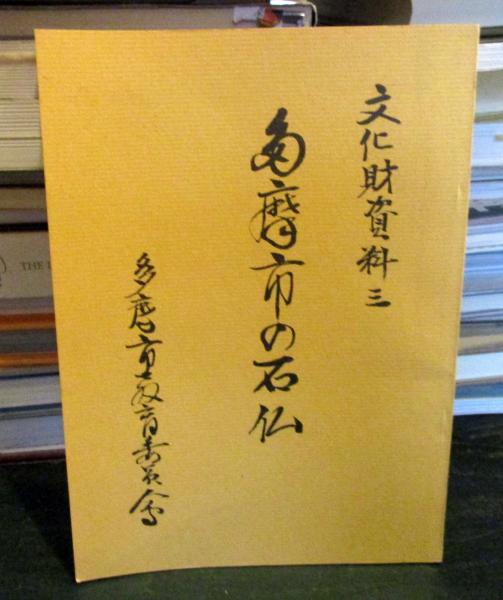 文化財資料三
多摩市の石仏
多摩市教育委員会
THE